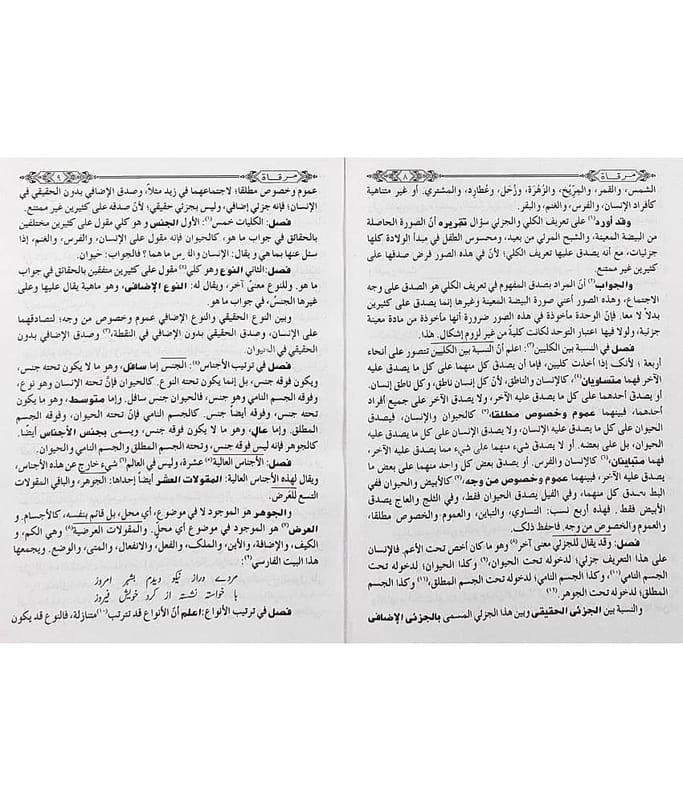 مرقاة
٨
الشمس، والقمر، والمِرِّيْخ، والزُّهَرَة، وزُحَل، وعُطارد، والمشتري. أو غير متناهية
كأفراد الإنسان، والفرس، والغنم، والبقر.
وقد أورد(١) على تعريف الكلي والجزئي سؤال تقريره أنّ الصورة الحاصلة
من البيضة المعينة، والشبح المرئي من بعيد، ومحسوس الطفل في مبدأ الولادة كلها
جزئيات، مع أنه يصدق عليها تعريف الكلي؛ لأنّ في هذه الصور فرض صدقها على
كثيرين غير ممتنع.
والجواب(٢) أنّ المراد بصدق المفهوم في تعريف الكلي هو الصدق على وجه
الاجتماع، وهذه الصور أعني صورة البيضة المعينة وغيرها إنما يصدق على كثيرين
بدلاً لا معا. فإنّ الوحدة مأخوذة في هذه الصور ضرورة أنها مأخوذة من مادة معينة
جزئية، ولولا فيها اعتبار التوحد لكانت كلية من غير لزوم إشكال. هذا.
فصل في نسبة بين الكليين(٣): اعلم أنّ النسبة بين الكليين تتصور على أنحاء
أربعة؛ لأنك إذا أخذت كليين، فإما أن يصدق كل منهما على كل ما يصدق عليه
الآخر فهما متساويان(٤)، كالإنسان والناطق، لأنّ كل إنسان ناطق، وكل ناطق إنسان.
أو يصدق أحدهما على كل ما يصدق عليه الآخر، ولا يصدق الآخر على جميع أفراد
أحدهما، فبينهما عموم وخصوص مطلقا(٥) كالحيوان والإنسان، فيصدق
الحيوان على كل ما يصدق عليه الإنسان، ولا يصدق الإنسان على كل ما يصدق عليه
الحيوان، بل على بعضه. أو لا يصدق شيء منهما على شيء مما يصدق عليه الآخر،
فهما متباينان،(٦) كالإنسان والفرس. أو يصدق بعض كل واحد منهما على بعض ما
يصدق عليه الآخر، فبينهما عموم وخصوص من وجه،(٧) كالأبيض والحيوان ففي
البط يصدق كل منهما، وفي الفيل يصدق الحيوان فقط، وفي الثلج والعاج يصدق
الأبيض فقط. فهذه أربع نسب: التساوي، والتباين، والعموم والخصوص مطلقا،
والعموم والخصوص من وجه. فاحفظ ذلك.
فصل: وقد يقال للجزئي معنى آخر(٨) وهو ما كان أخص تحت الأعم. فالإنسان
على هذا التعريف جزئي؛ لدخوله تحت الحيوان،(٩) وكذا الحيوان؛ لدخوله تحت
الجسم النامي،(١٠) وكذا الجسم النامي؛ لدخوله تحت الجسم المطلق،(١١) وكذا الجسم
المطلق؛ لدخوله تحت الجوهر.(١٢)
والنسبة بين الجزئي الحقيقي وبين هذا الجزئي المسمى بالجزئي الإضافي
مرقاة
٩
عموم وخصوص مطلقا؛ لاجتماعهما في زيد مثلاً، وصدق الإضافي بدون الحقيقي في
الإنسان؛ فإنه جزئي إضافي، وليس بجزئي حقيقي؛ لأنّ صدقه على كثيرين غير ممتنع.
فصل: الكليات خمس(١): الأول الجنس وهو كلي مقول على كثيرين مختلفين
بالحقائق في جواب ما هو، كالحيوان فإنه مقول على الإنسان، والفرس، والغنم، إذا
سئل عنها بما هي و يقال: الإنسان والفرس ما هما؟ فالجواب: حيوان.
فصل: الثاني النوع وهو كلي(٢) مقول على كثيرين متفقين بالحقائق في جواب
ما هو. وللنوع معنىً آخر، ويقال له: النوع الإضافي، وهو ماهية يقال عليها وعلى
غيرها الجنسُ، في جواب ما هو.
وبين النوع الحقيقي والنوع الإضافي عموم وخصوص من وجه؛ لتصادقهما
على الإنسان، وصدق الحقيقي بدون الإضافي في النقطة،(٣) وصدق الإضافي بدون
الحقيقي في الحيوان.
فصل في ترتيب الأجناس(٤): الجنس إما سافل، وهو ما لا يكون تحته جنس،
ويكون فوقه جنس، بل إنما يكون تحته النوع. كالحيوان فإنّ تحته الإنسان وهو نوع،
وفوقه الجسم النامي وهو جنس، فالحيوان جنس سافل. وإما متوسط، وهو ما يكون
تحته جنس، وفوقه أيضاً جنس. كالجسم النامي فإنّ تحته الحيوان، وفوقه الجسم
المطلق. وإما عال، وهو ما لا يكون فوقه جنس، ويسمى بجنس الأجناس أيضا.
كالجوهر فإنه ليس فوقه جنس، وتحته الجسم المطلق والجسم النامي والحيوان.
فصل: الأجناس العالية(٥) عشرة، وليس في العالم(٦) شيء خارج عن هذه الأجناس،
ويقال لهذه الأجناس العالية: المقولات العشر أيضاً إحداها: الجوهر، والباقي المقولات
التسع للعَرَض.
والجوهر هو الموجود لا في موضوع، أي محل، بل قائم بنفسه، كالأجسام. و
العرض(٧) هو الموجود في موضوع أي محلٍ. والمقولات العرضية(٨) وهي الكم، و
الكيف، والإضافة، والأين، والملك، والفعل، والانفعال، والمتى، والوضع. ويجمعها
هذا البيت الفارسي(٩):
مردے دراز نیکو دیدم بشہر امروز
با خواستہ نشستہ از کرد خویش فیروز
فصل في ترتيب الأنواع: اعلم أنّ الأنواع قد تترتب(١٠) متنازلة، فالنوع قد يكون